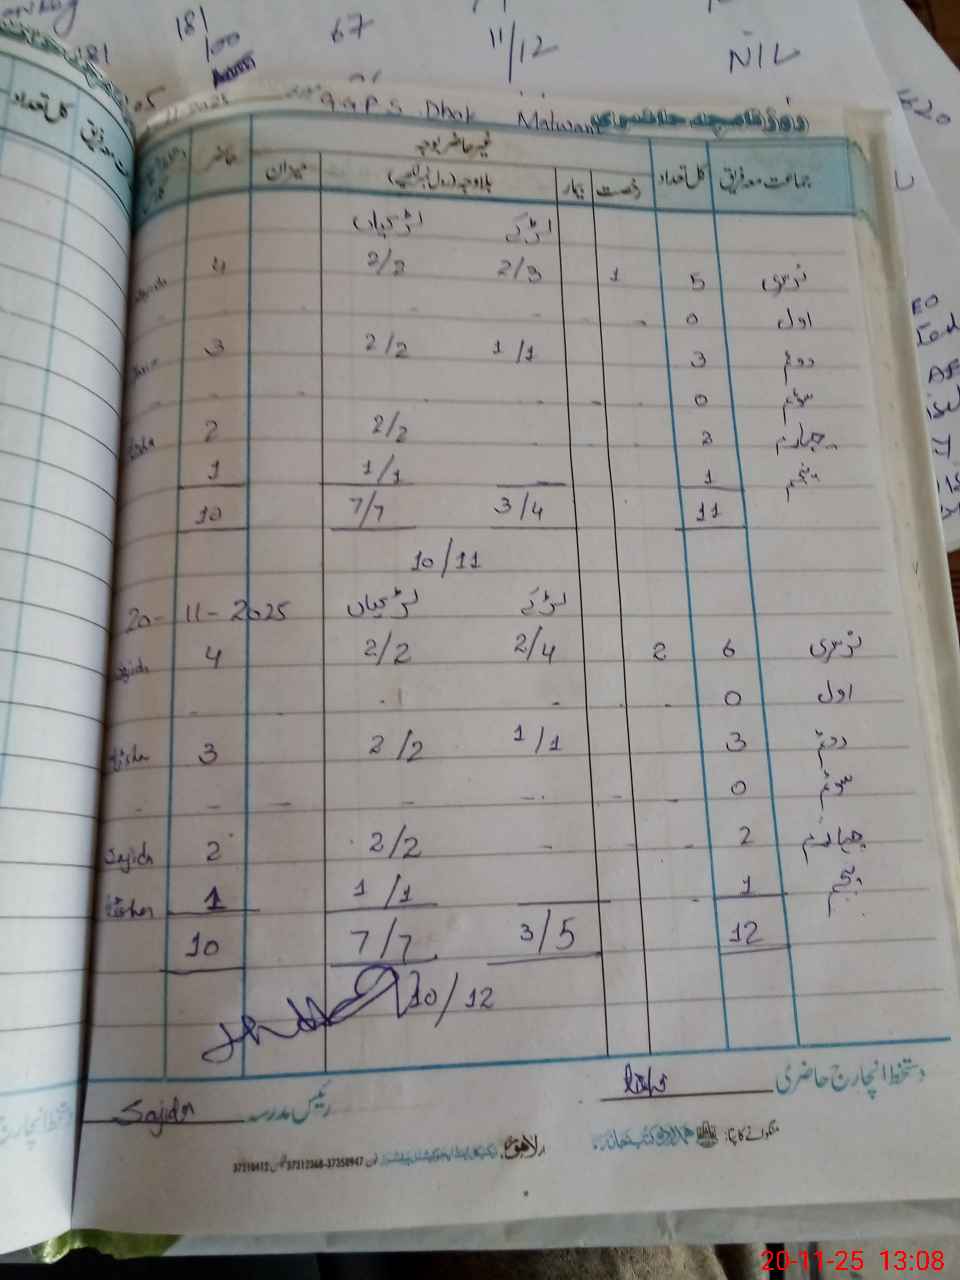 181
181
100
67
11/12
NIL
G.G.P.S. Dhok Malwan
روزنامچہ حاضری
جماعت معہ فریق کل تعداد غیر حاضر بوجہ حاضر
رخصت بیمار بلاوجہ (رول نمبر لکھیے) میزان
لڑکے لڑکیاں
نرسری 5 1 2/3 2/2 4 Sajida
اول 0 - - - - -
دوئم 3 1/1 2/2 3
سوئم 0 - - - - -
چہارم 2 - 2/2 2
پنجم 1 1/1 1
11 3/4 7/7 10
10/11
20-11-2025
لڑکے لڑکیاں
نرسری 6 2 2/4 2/2 4 Sajida
اول 0 - - - - -
دوئم 3 1/1 2/2 3
سوئم 0 - - - - - - -
چہارم 2 - - - 2/2 2 Sajida
پنجم 1 - 1/1 1
12 3/5 7/7 10
10/12
دستخط انچارج حاضری
رئیس مدرسہ Sajida
منگوانے کا پتہ: لاہور
37310412 37312368-37358947
کل تعداد
20-11-25 13:08